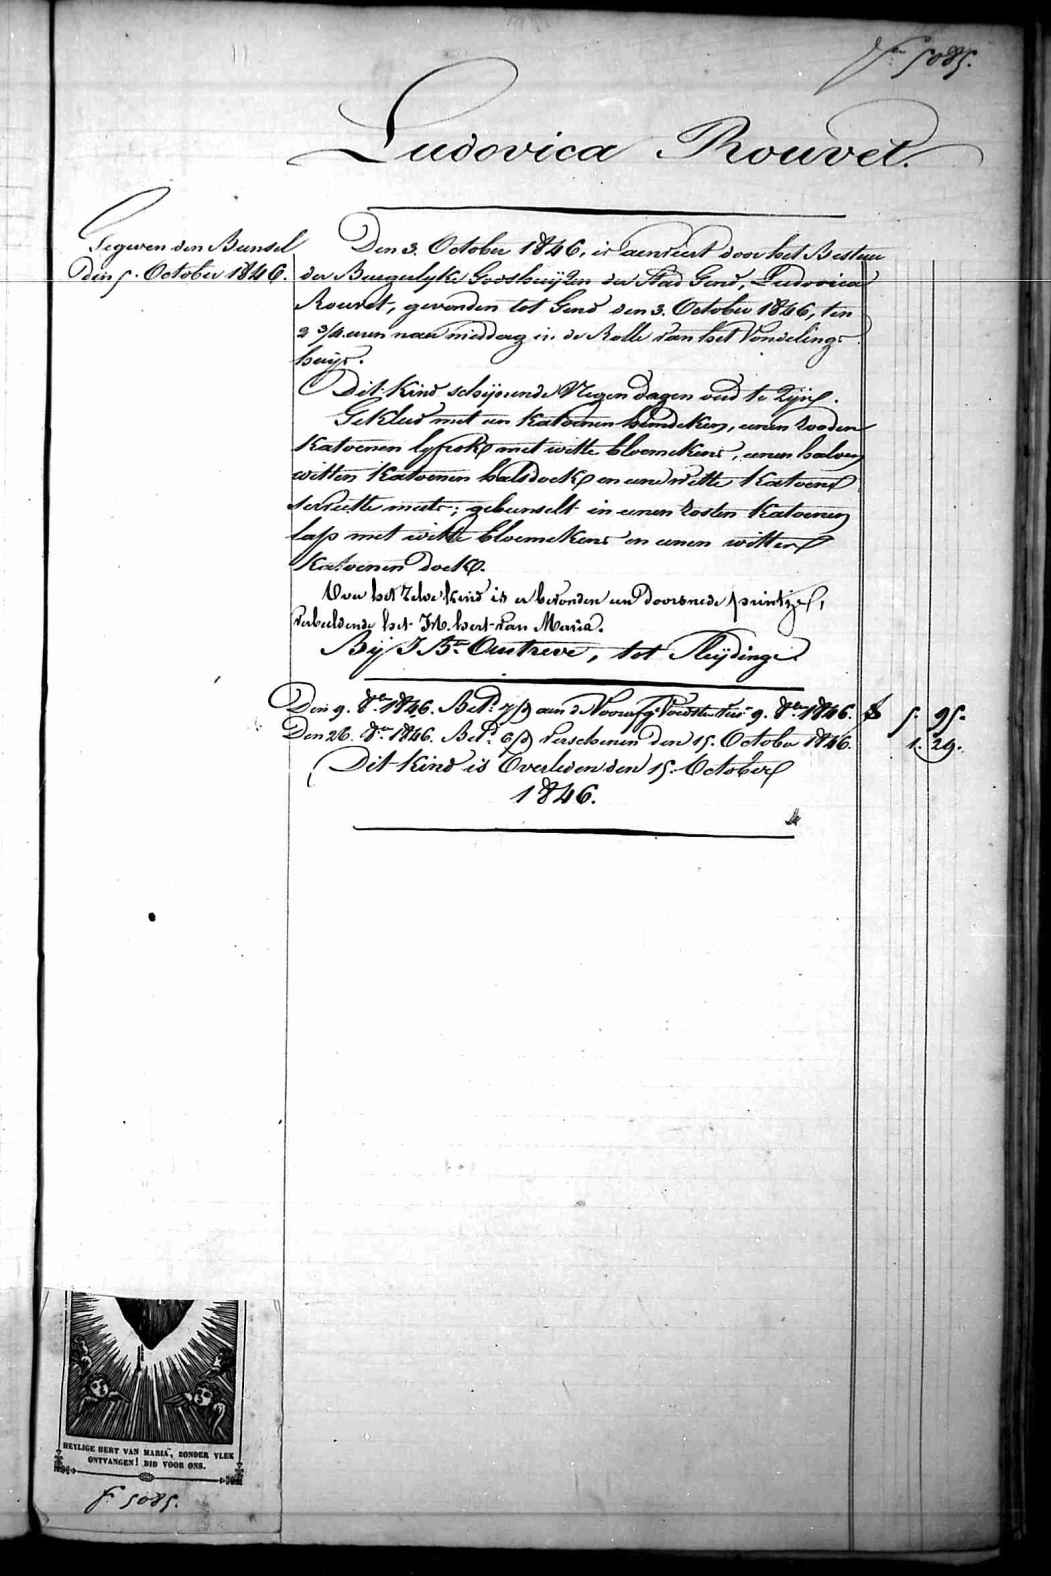 fo 5085.
Ludovica Rouvet.
Gegeven den Bunsel
den 5. October 1846.
Den 3. October 1846, is aenveert door het Bestuer
der Burgerlyke Godshuijzen der Stad Gend, Ludovica
Rouvet, gevonden tot Gend den 3. October 1846, ten
2 3/4 uren naer middag in de Rolle van het Vondeling-
huijs.
Dit Kind schijnende Negen dagen oud te Zijn.
Gekleed met een Katoenen hemdeken, eenen rooden
Katoenen lyfrok met witte bloemekens, eenen halven
witten Katoenen halsdoek en eene witte Katoene
serviette muts; gebunselt in eenen rosten Katoenen
lap met witte bloemekens en eenen witten
Katoenen doek.
Over het zelve kind is er bevonden een doorsnede printzel,
verbeldende het H. hert van Maria.
Bij J. Bte Oustreve, tot Sleijdinge.
Den 9. 8er 1846. Betd 7/9 aen d. Voedster 9. 8ber 1846. 5. 95.
Den 26. 8er 1846. Betd 6/9 verschenen den 15. October 1846. 1. 29.
Dit kind is Overleden den 15. October
1846.
HEYLIGE HERT VAN MARIA, ZONDER VLEK
ONTVANGEN! BID VOOR ONS.
fo 5085.